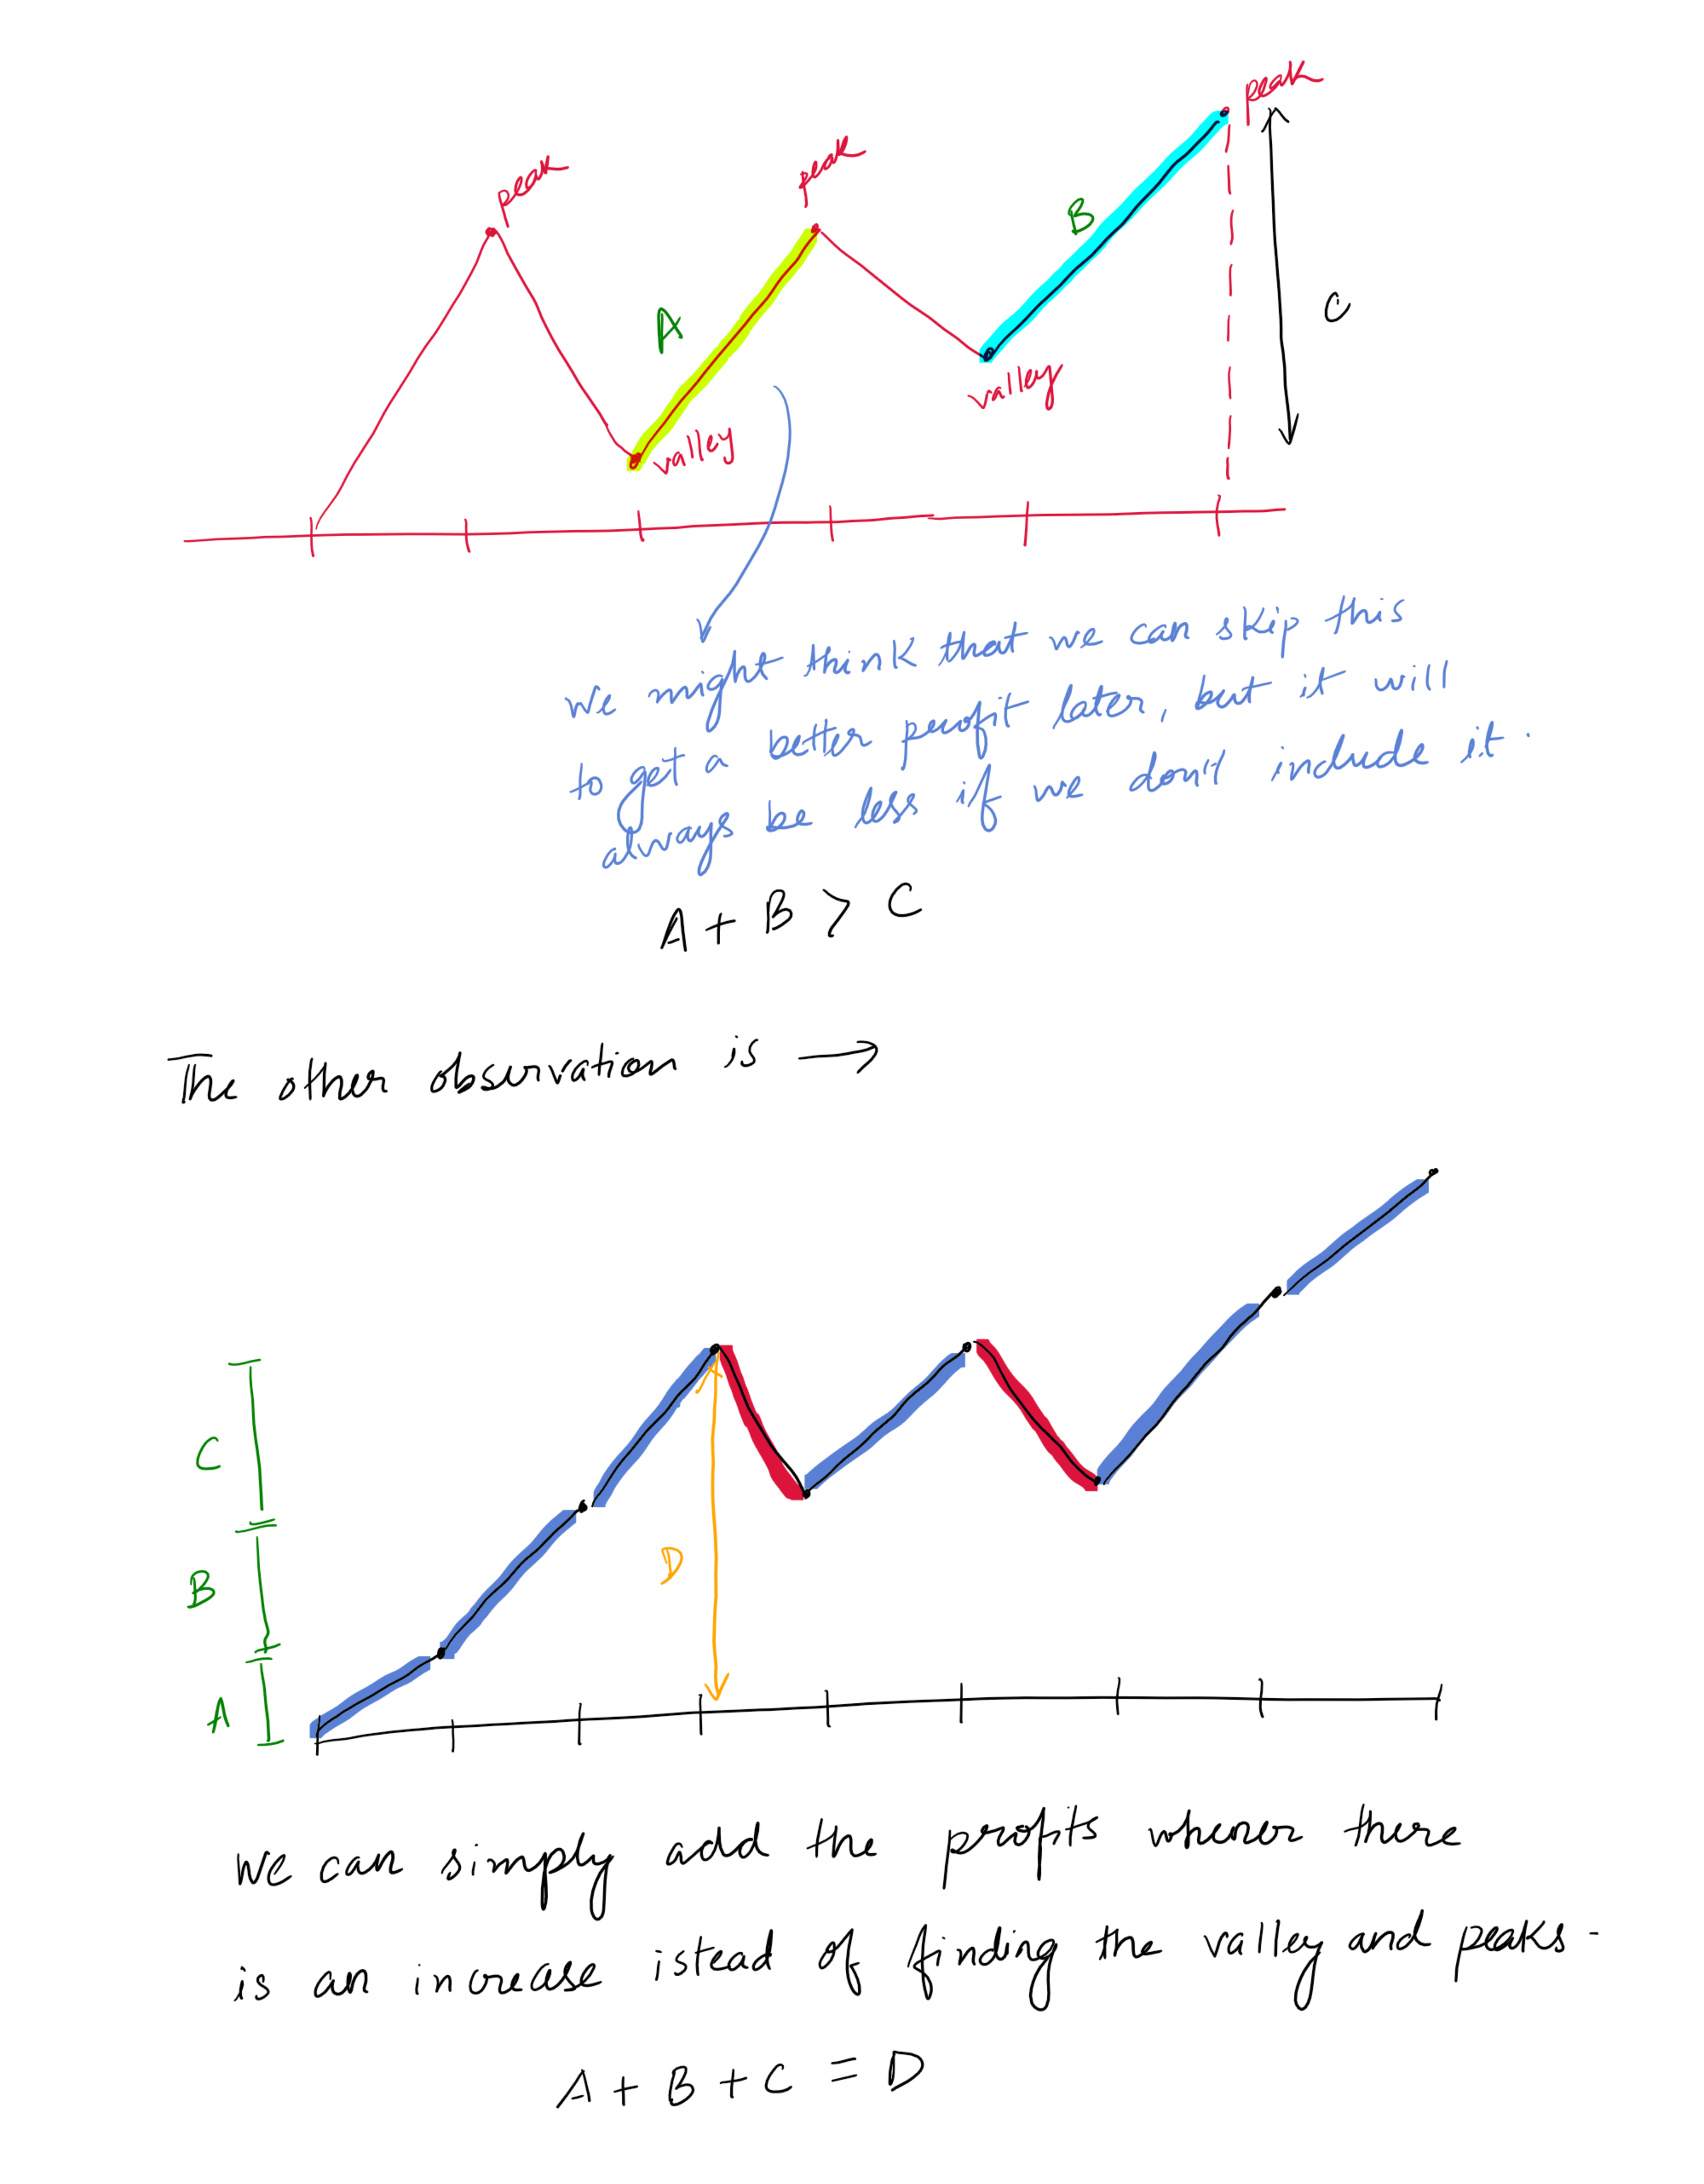 peak
peak
peak
A
B
C
valley
valley
we might think that we can skip this
to get a better profit later, but it will
always be less if we don't include it.
A + B > C
The other observation is →
C
B
A
D
we can simply add the profits whenever there
is an increase istead of finding the valley and peaks.
A + B + C = D